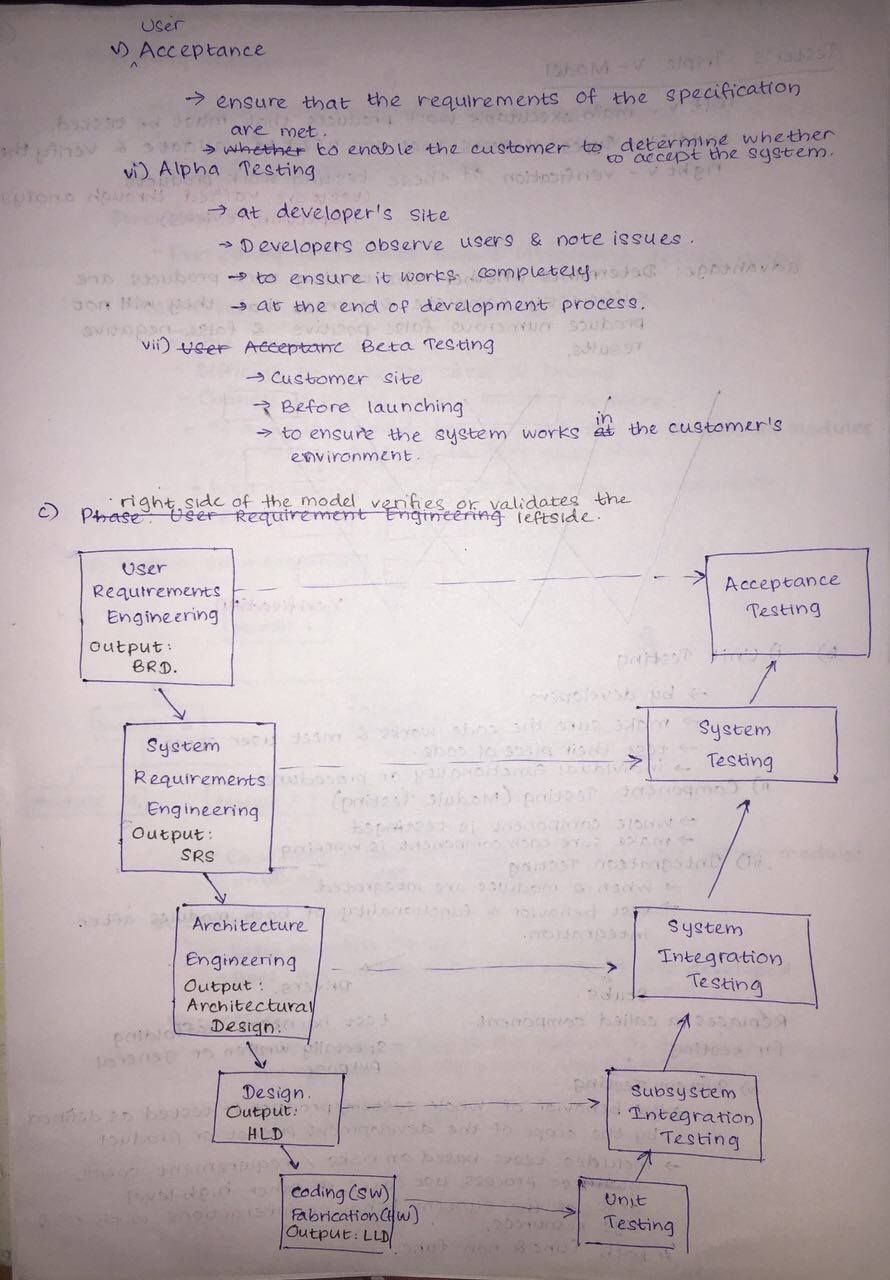 User
v) ^ Acceptance
→ ensure that the requirements of the specification
are met.
→ whether to enable the customer to determine whether
to accept the system.
vi) Alpha Testing
→ at developer's site
→ Developers observe users & note issues.
→ to ensure it works completely
→ at the end of development process.
vii) User Acceptanc Beta Testing
→ Customer site
→ Before launching
in
→ to ensure the system works at the customer's
environment.
right side of the model verifies or validates the
c) Phase: User Requirement Engineering leftside.
User
Requirements
Engineering
Output:
BRD.
Acceptance
Testing
System
Requirements
Engineering
Output:
SRS
System
Testing
Architecture
Engineering
Output:
Architectural
Design.
System
Integration
Testing
Design.
Output:
HLD
Subsystem
Integration
Testing
Coding (SW)
Fabrication (HW)
Output: LLD
Unit
Testing